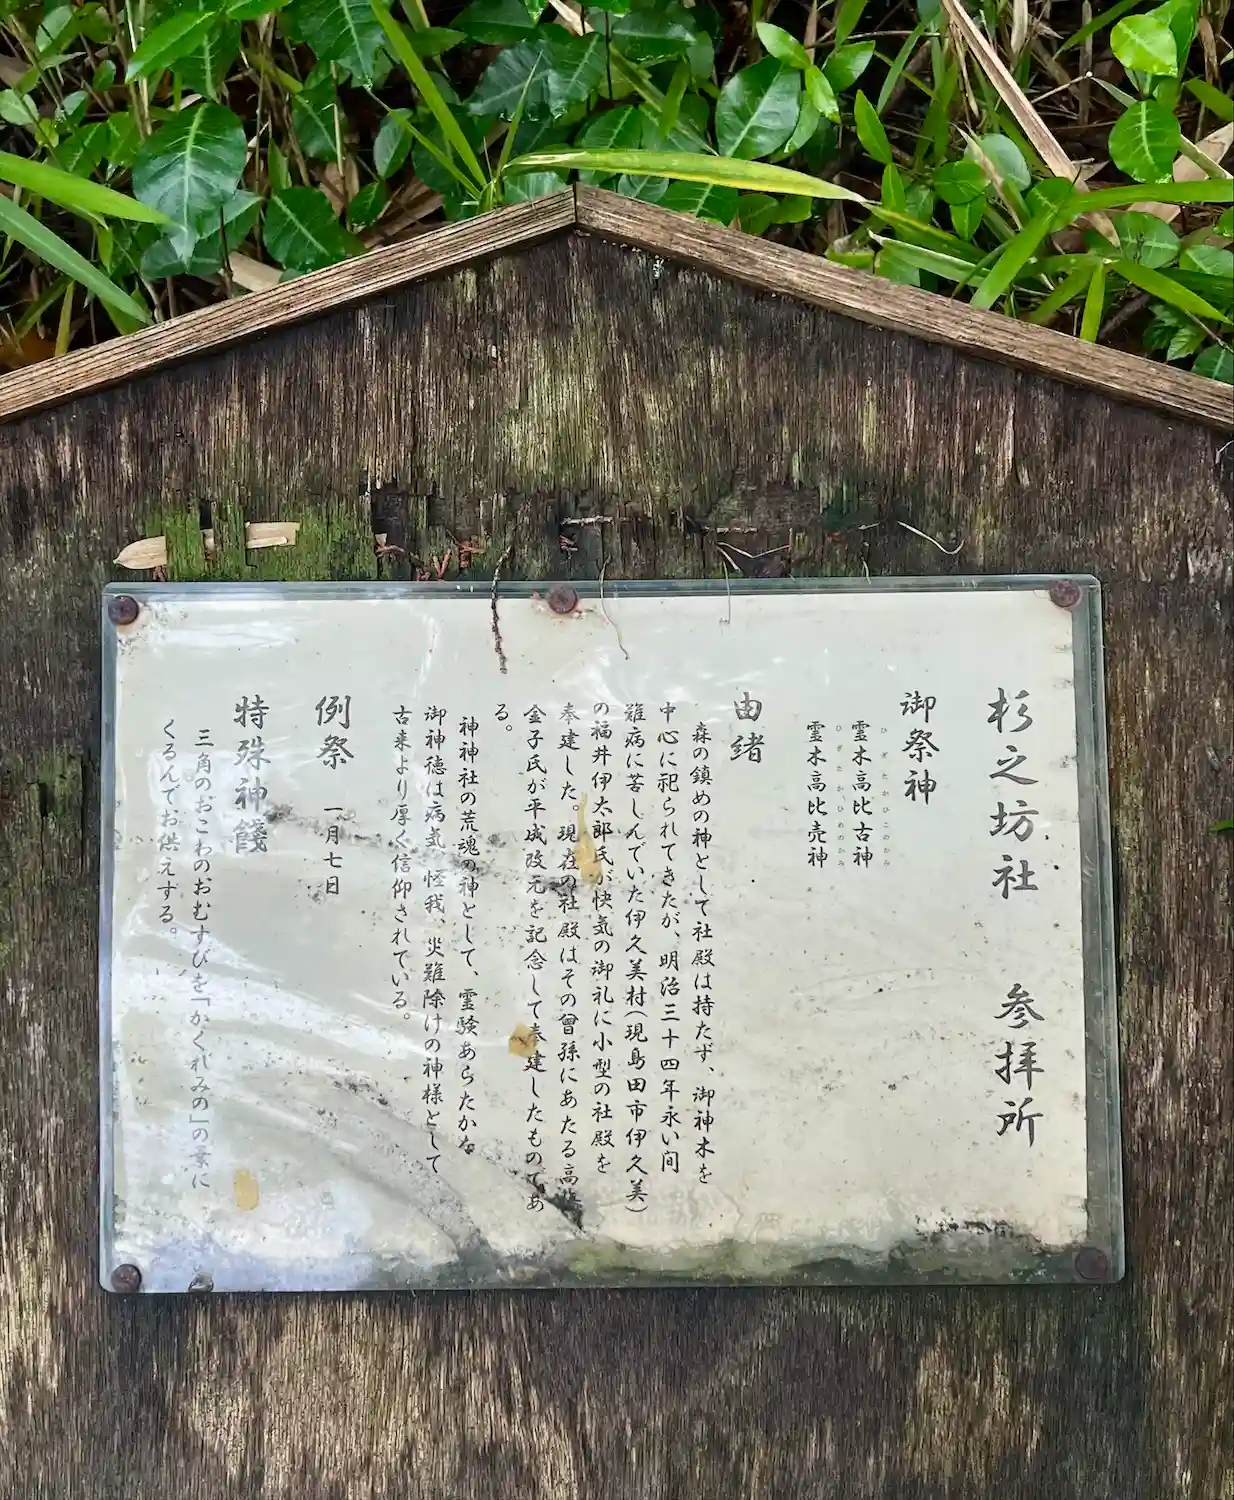 杉之坊社 参拝所
御祭神
ひぎたかひこのかみ
霊木高比古神
ひぎたかひめのかみ
霊木高比売神
由緒
森の鎮めの神として社殿は持たず、御神木を
中心に祀られてきたが、明治三十四年永い間
難病に苦しんでいた伊久美村(現島田市伊久美)
の福井伊太郎氏が快気の御礼に小型の社殿を
奉建した。現在の社殿はその曾孫にあたる高
金子氏が平成改元を記念して奉建したものであ
る。
神神社の荒魂の神として、霊験あらたかな
御神徳は病気、怪我、災難除けの神様として
古来より厚く信仰されている。
例祭 一月七日
特殊神饌
三角のおこわのおむすびを「かくれみの」の葉に
くるんでお供えする。